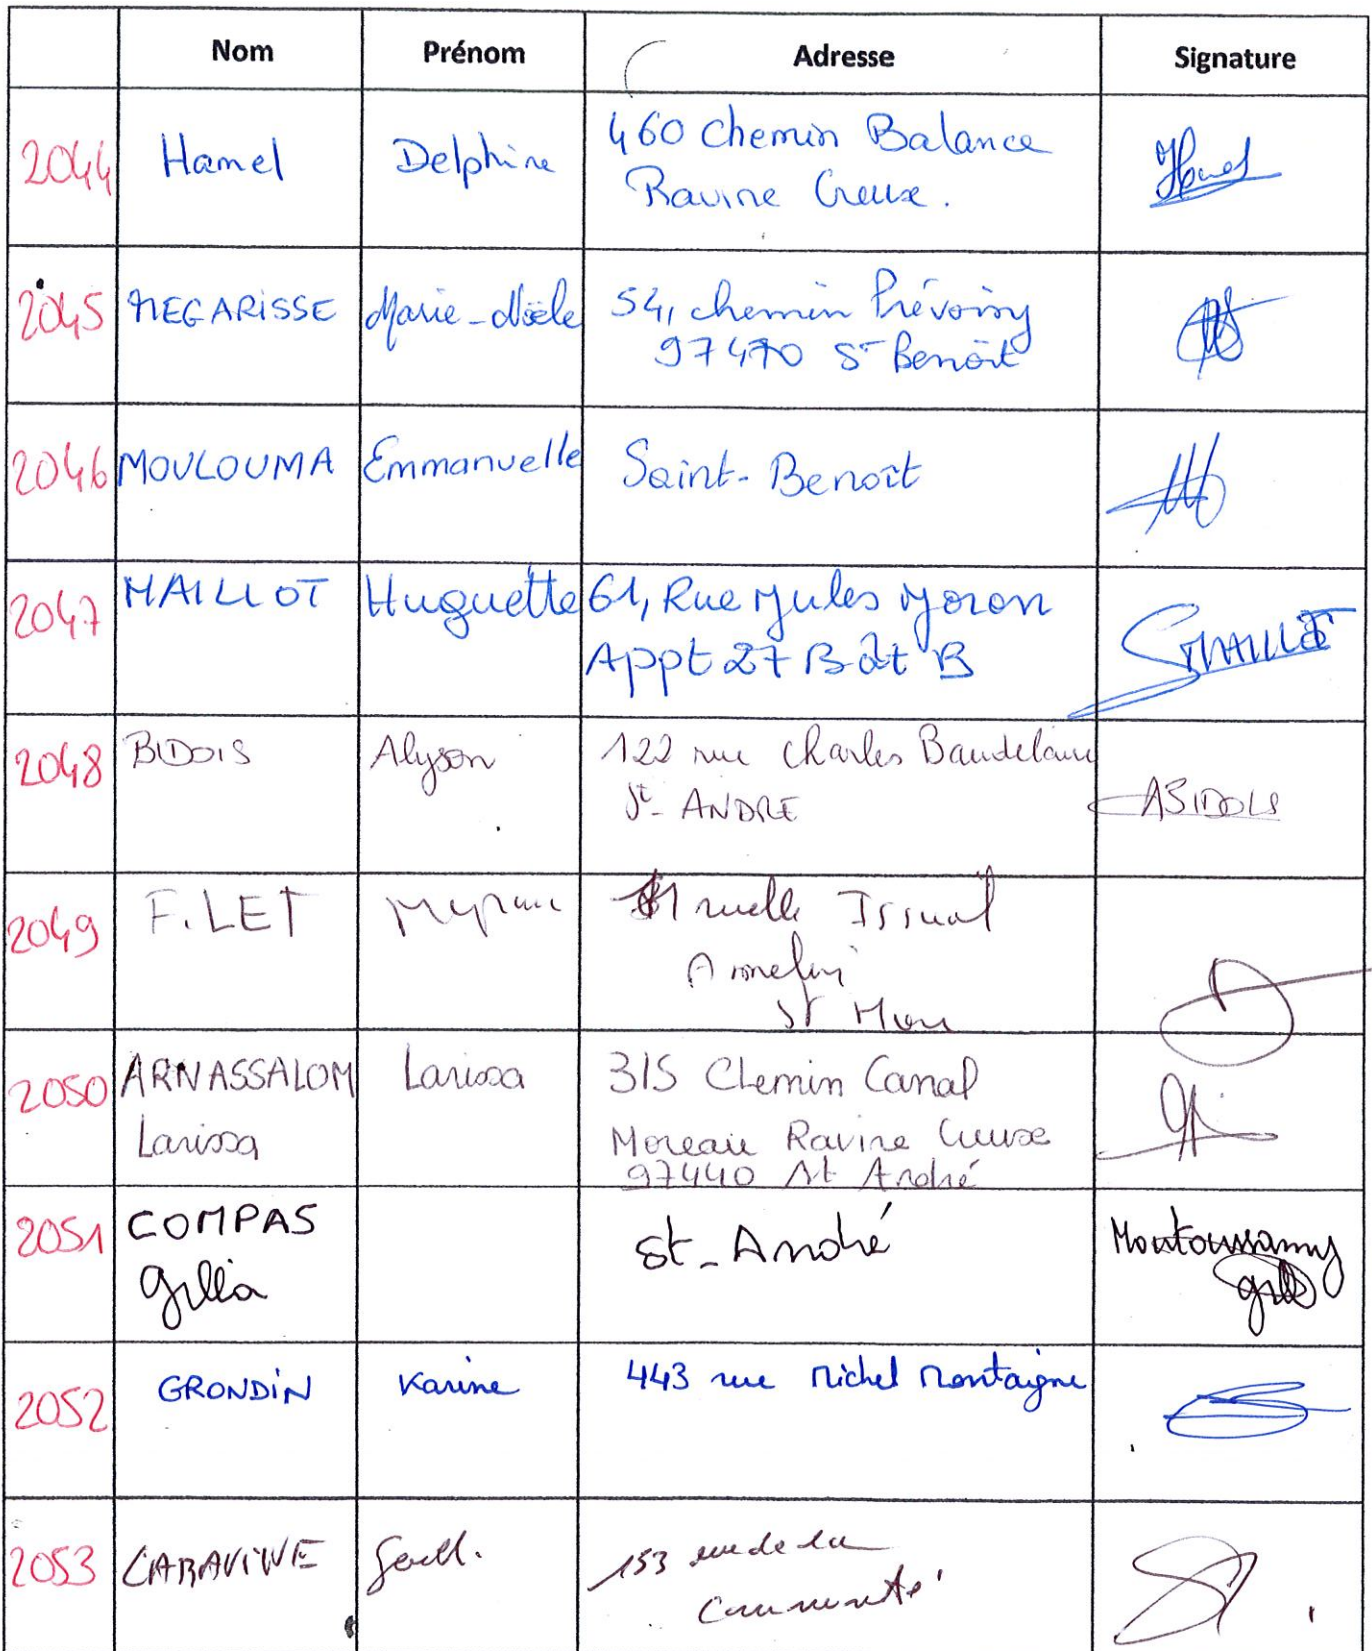 Nom Prénom Adresse Signature
2044 Hamel Delphine 460 Chemin Balance
Ravine Creuse.
2045 NEGARISSE Marie-Noële 54, chemin Prévoisy
97470 St Benoît
2046 MOULOUMA Emmanuelle Saint-Benoît
2047 MAILLOT Huguette 61, Rue Jules Joron
Appt 27 Bât B
2048 BIDOIS Alyson 122 rue Charles Baudelaire
St- ANDRE ABIDOIS
2049 F.LET ruelle
St
2050 ARNASSALOM Larissa 315 Chemin Canal
Larissa Moreau Ravine Creuse
97440 St André
2051 COMPAS St-André Moutoussamy
Gilla
2052 GRONDIN Karine 443 rue Michel Montaigne
2053 153 rue de la